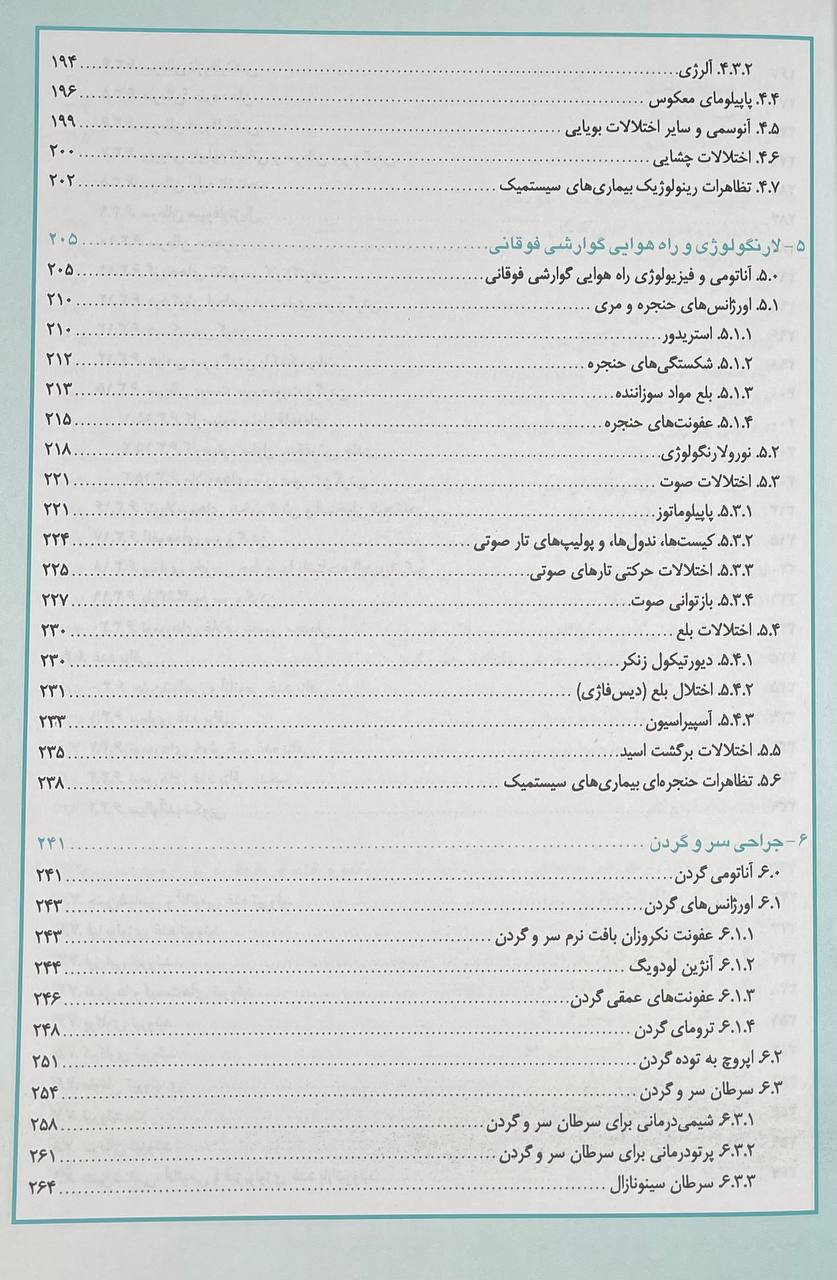 ۴.۳.۲. آلرژی ۱۹۴
۴.۴. پاپیلومای معکوس ۱۹۶
۴.۵. آنوسمی و سایر اختلالات بویایی ۱۹۹
۴.۶. اختلالات چشایی ۲۰۰
۴.۷. تظاهرات رینولوژیک بیماری‌های سیستمیک ۲۰۲
۵- لارنگولوژی و راه هوایی گوارشی فوقانی ۲۰۵
۵.۰. آناتومی و فیزیولوژی راه هوایی گوارشی فوقانی ۲۰۵
۵.۱. اورژانس‌های حنجره و مری ۲۱۰
۵.۱.۱. استریدور ۲۱۰
۵.۱.۲. شکستگی‌های حنجره ۲۱۲
۵.۱.۳. بلع مواد سوزاننده ۲۱۳
۵.۱.۴. عفونت‌های حنجره ۲۱۵
۵.۲. نورولارنگولوژی ۲۱۸
۵.۳. اختلالات صوت ۲۲۱
۵.۳.۱. پاپیلوماتوز ۲۲۱
۵.۳.۲. کیست‌ها، ندول‌ها، و پولیپ‌های تار صوتی ۲۲۴
۵.۳.۳. اختلالات حرکتی تارهای صوتی ۲۲۵
۵.۳.۴. بازتوانی صوت ۲۲۷
۵.۴. اختلالات بلع ۲۳۰
۵.۴.۱. دیورتیکول زنکر ۲۳۰
۵.۴.۲. اختلال بلع (دیس‌فاژی) ۲۳۱
۵.۴.۳. آسپیراسیون ۲۳۳
۵.۵. اختلالات برگشت اسید ۲۳۵
۵.۶. تظاهرات حنجره‌ای بیماری‌های سیستمیک ۲۳۸
۶- جراحی سر و گردن ۲۴۱
۶.۰. آناتومی گردن ۲۴۱
۶.۱. اورژانس‌های گردن ۲۴۳
۶.۱.۱. عفونت نکروزان بافت نرم سر و گردن ۲۴۳
۶.۱.۲. آنژین لودویگ ۲۴۴
۶.۱.۳. عفونت‌های عمقی گردن ۲۴۶
۶.۱.۴. ترومای گردن ۲۴۸
۶.۲. اپروچ به توده گردن ۲۵۱
۶.۳. سرطان سر و گردن ۲۵۴
۶.۳.۱. شیمی‌درمانی برای سرطان سر و گردن ۲۵۸
۶.۳.۲. پرتودرمانی برای سرطان سر و گردن ۲۶۱
۶.۳.۳. سرطان سینونازال ۲۶۴